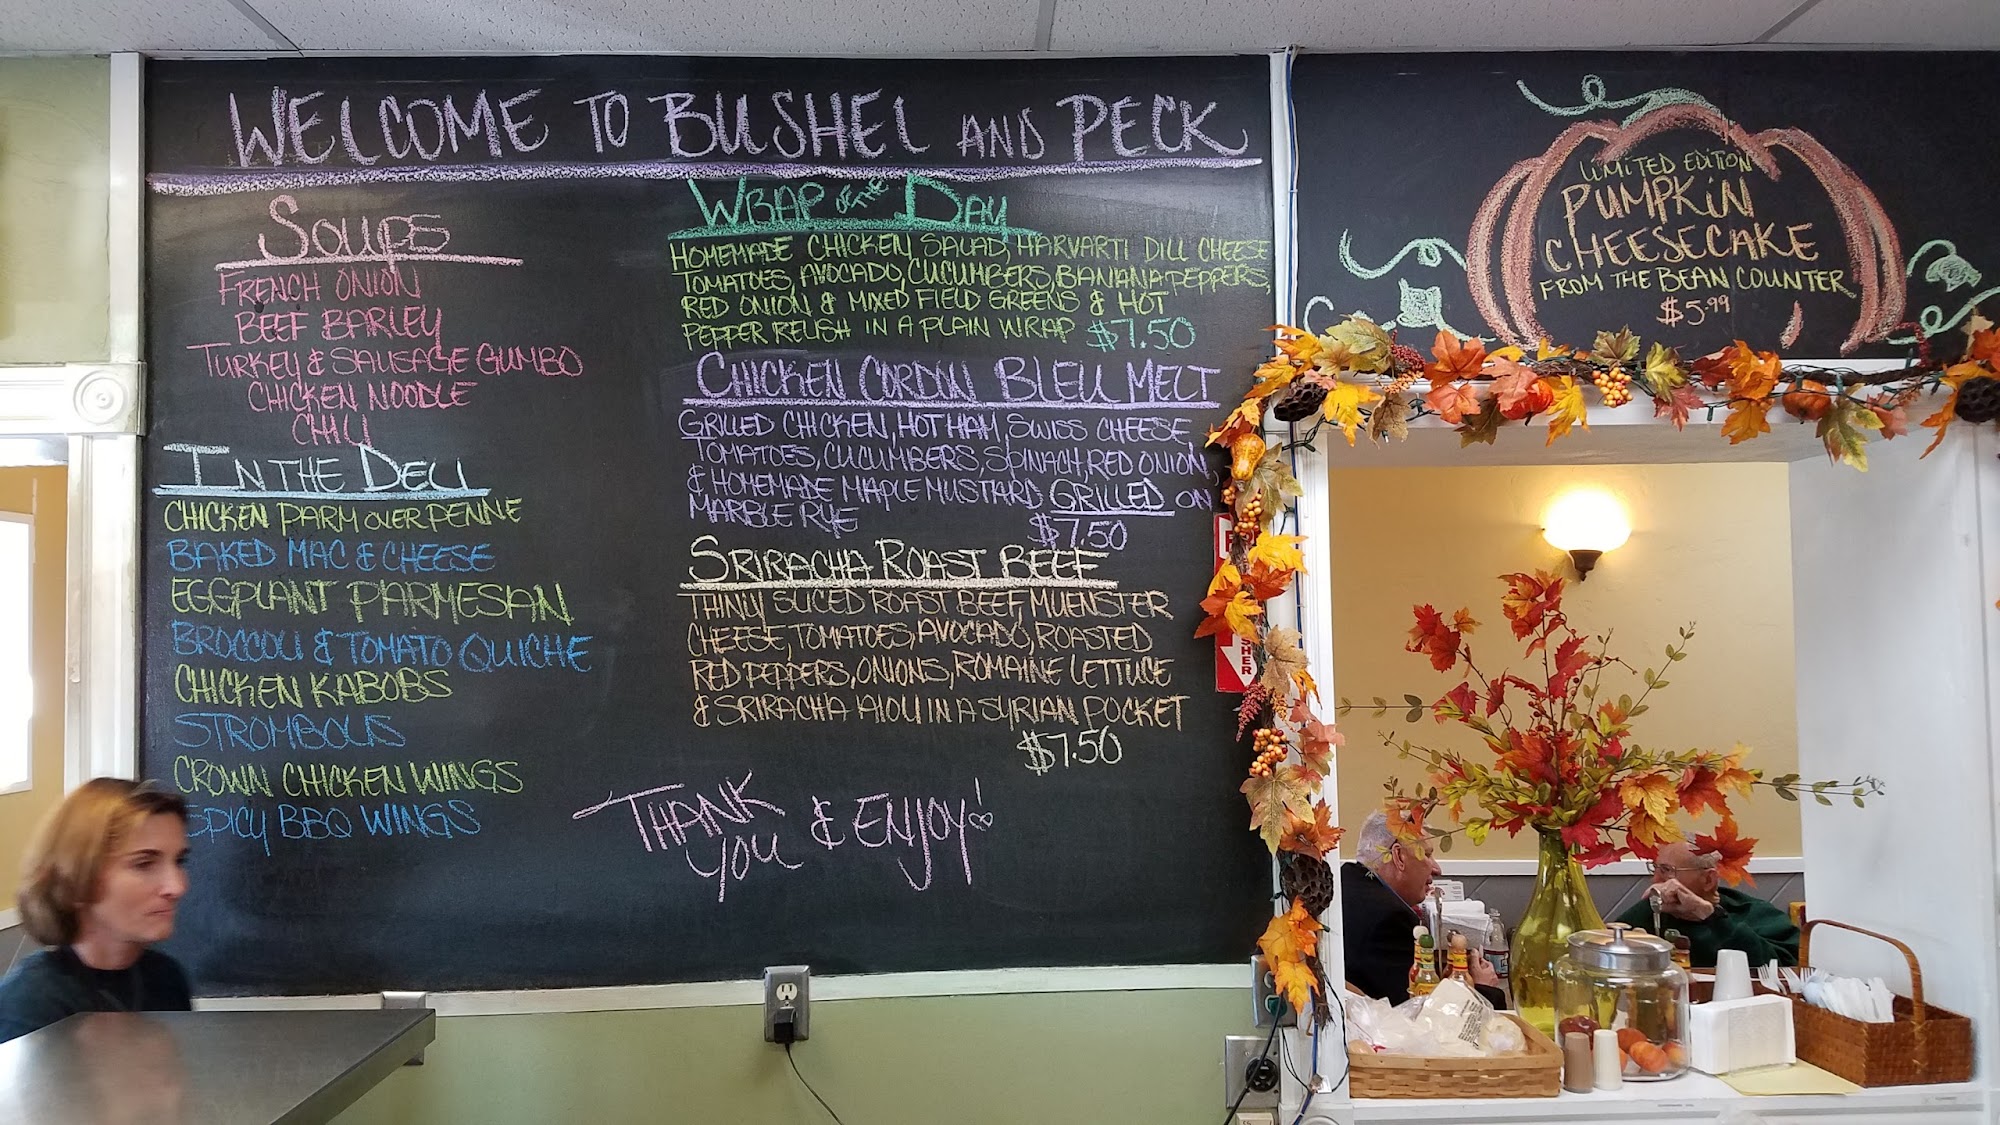 WELCOME TO BUSHEL AND PECK
SOUPS
FRENCH ONION
BEEF BARLEY
TURKEY & SAUSAGE GUMBO
CHICKEN NOODLE
CHILI
IN THE DELI
CHICKEN PARM OVER PENNE
BAKED MAC & CHEESE
EGGPLANT PARMESAN
BROCCOLI & TOMATO QUICHE
CHICKEN KABOBS
STROMBOLIS
CROWN CHICKEN WINGS
SPICY BBQ WINGS
WRAP OF THE DAY
HOMEMADE CHICKEN SALAD, HARVARTI DILL CHEESE
TOMATOES, AVOCADO, CUCUMBERS, BANANA PEPPERS,
RED ONION & MIXED FIELD GREENS & HOT
PEPPER RELISH IN A PLAIN WRAP $7.50
CHICKEN CORDON BLEU MELT
GRILLED CHICKEN, HOT HAM, SWISS CHEESE,
TOMATOES, CUCUMBERS, SPINACH, RED ONION,
& HOMEMADE MAPLE MUSTARD GRILLED ON
MARBLE RYE
$7.50
SRIRACHA ROAST BEEF
THINLY SLICED ROAST BEEF, MUENSTER
CHEESE, TOMATOES, AVOCADO, ROASTED
RED PEPPERS, ONIONS, ROMAINE LETTUCE
& SRIRACHA AIOLI IN A SYRIAN POCKET
$7.50
THANK YOU & ENJOY!
LIMITED EDITION
PUMPKIN
CHEESECAKE
FROM THE BEAN COUNTER
$5.99